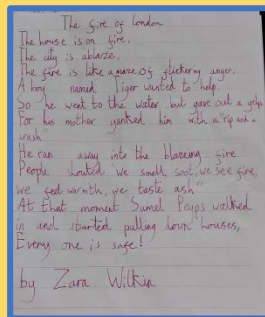 The fire of london
The house is on fire,
The city is ablaze.
The fire is like a maze of flickering anger.
A boy named Tiger wanted to help.
So he went to the water but gave out a yelp
For his mother yanked him with a "rip and a
That
He ran away into the blazeing fire
People shouted we smell soot, we see fire,
we feel warmth, we taste ash"
At that moment Samel Peyps walked
in and started pulling down houses,
Every one is safe!
by Zara Wilkin